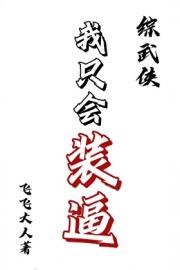 综武侠
我只会装逼
飞飞大人著